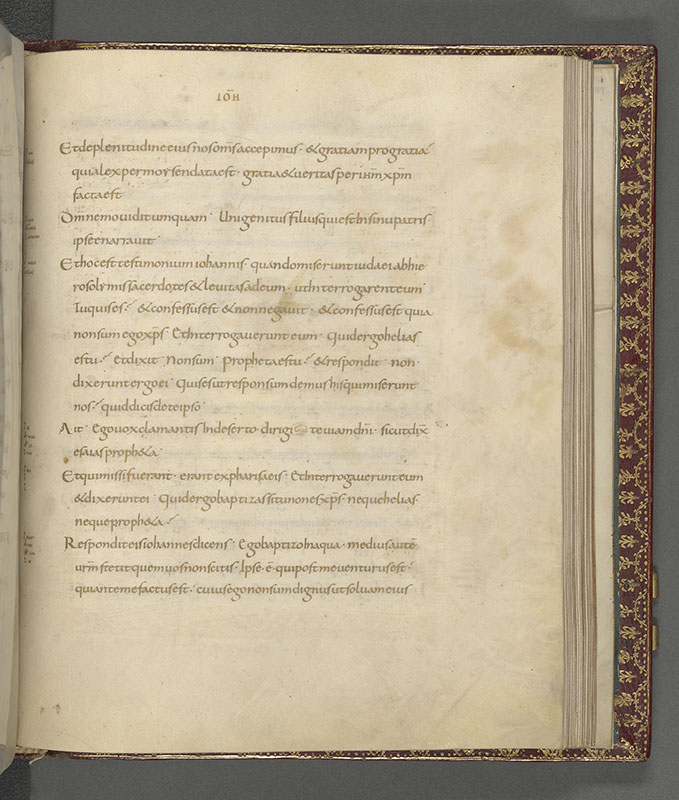 IOH̄
Et de plenitudine eius nos om̄s accepimus · & gratiam pro gratia ·
quia lex per moysen data est · gratia & ueritas per ih̄m xp̄m
facta est
Dm̄ nemo uidit umquam · Unigenitus filius qui est In sinu patris
ipse enarrauit ·
Et hoc est testimonium iohannis · quando miserunt iudaei ab hie
rosolymis sacerdotes & leuitas ad eum · ut Interrogarent eum
Tu quis es ·? & confessus est & non negauit · & confessus est quia
non sum ego xp̄s · Et Interrogauerunt eum · Quid ergo helias
es tu ·? Et dixit · Non sum · Propheta es tu ·? & respondit · non ·
dixerunt ergo ei · Quis es ut responsum demus his qui miserunt
nos ·? quid dicis de te ipso
Ait · Ego uox clamantis In deserto dirigite uiam dn̄i · sicut dix̄
esaias proph&a ·
Et qui missi fuerant · erant ex pharisaeis · Et Interrogauerunt eum
& dixerunt ei · Quid ergo baptizas si tu non es xp̄s · neque helias ·
neque proph&a ·?
Respondit eis iohannes dicens · Ego baptizo In aqua · medius autē
ur̄m stetit quem uos non scitis · Ipse · ē · qui post me uenturus est ·
qui ante me factus est · cuius ego non sum dignus ut soluam eius